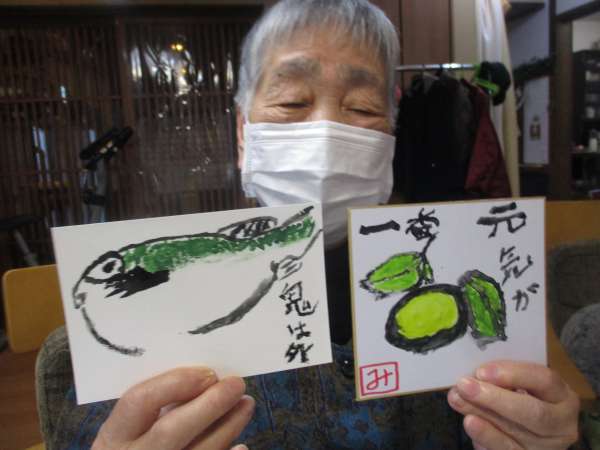 鬼は外
元気が
一番
み